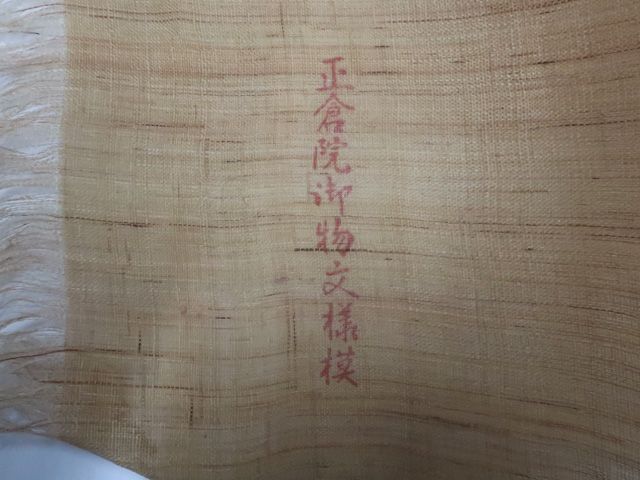 正倉院御物文様模